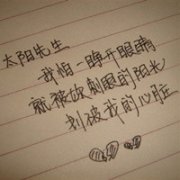 太阳先生
我怕一睁开眼睛
就被你刺眼的阳光
破我的心脏